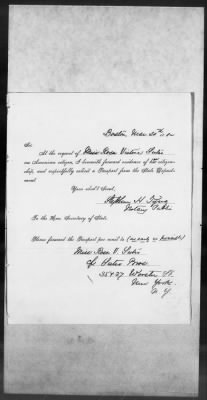 Boston Mar 20th
Sir
At the request of Miss Rosa Victoria
an American citizen, I herewith forward evidence of citizen-
ship, and respectfully solicit a Passport from the State Depart-
ment.
Your obd't Serv't,
Stephen H.
Notary Public
To the Hon. Secretary of State.
Please forward the Passport per mail to (as early as
Miss Rosa V.
c/o Bros
35 & 37 Wooster St.
New York.
N. Y.